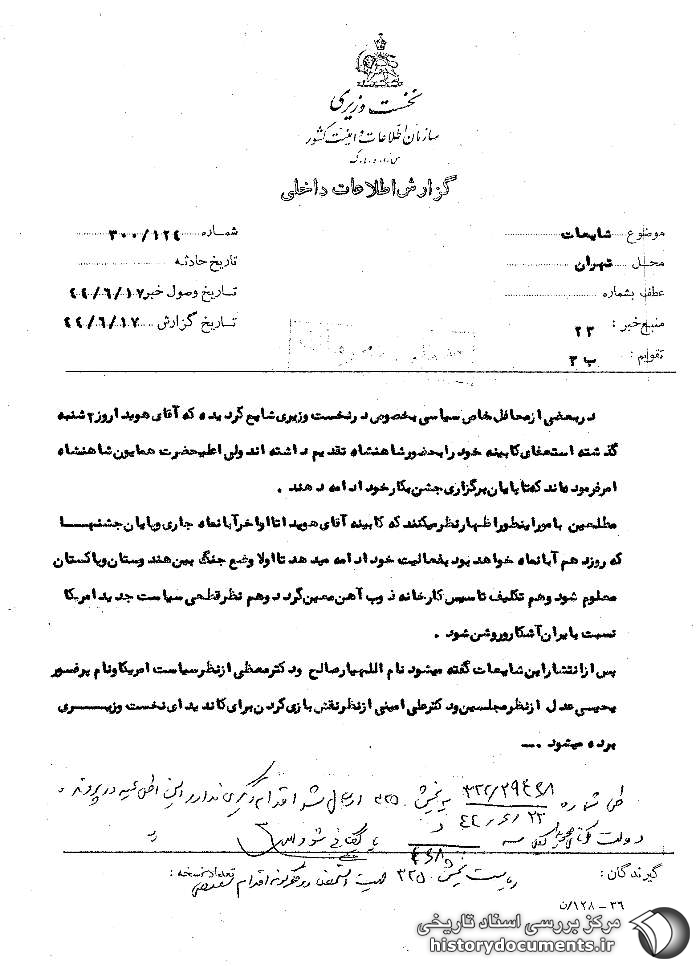 نخست وزیری
سازمان اطلاعات و امنیت کشور
س.ا.و.ا.ک
گزارش اطلاعات داخلی
موضوع شایعات
شماره ۳۰۰/۱۲٤
محل تهران
تاریخ حادثه
عطف بشماره
تاریخ وصول خبر ٤٤/٦/۱۷
منبع خبر : ۲۳
تاریخ گزارش ٤٤/٦/۱۷
تقویم : ب ۳
در بعضی از محافل خاص سیاسی بخصوص در نخست وزیری شایع گردیده که آقای هویدا روز ۲ شنبه
گذشته استعفای کابینه خود را بحضور شاهنشاه تقدیم داشته اند ولی اعلیحضرت همایون شاهنشاه
امر فرموده اند که تا پایان برگزاری جشن بکار خود ادامه دهند .
مطلعین بامور اینطور اظهار نظر میکنند که کابینه آقای هویدا تا اواخر آبانماه جاری و پایان جشنها
که روز دهم آبانماه خواهد بود بفعالیت خود ادامه میدهد تا اولا وضع جنگ بین هندوستان و پاکستان
معلوم شود و هم تکلیف تاسیس کارخانه ذوب آهن معین گردد و هم نظر قطعی سیاست جدید امریکا
نسبت بایران آشکار و روشن شود .
پس از انتشار این شایعات گفته میشود نام اللهیار صالح و دکتر معظمی از نظر سیاست امریکا و نام پرفسور
یحیی عدل از نظر مجلسین و دکتر علی امینی از نظر نقش بازی کردن برای کاندیدای نخست وزیری
برده میشود . ...
طی شماره ۳۲۲/۲۹٤٦۸ به بخش ارسال شد اقدام دیگری ندارد این اطلاعیه در پرونده
٤٤/٦/۲۳
دولت بایگانی شود
گیرندگان :
ریاست بخش ۳۲۵ اقدام
تعداد نسخه :
۳٦ – ۱۲۸/ن
مرکز بررسی اسناد تاریخی
historydocuments.ir